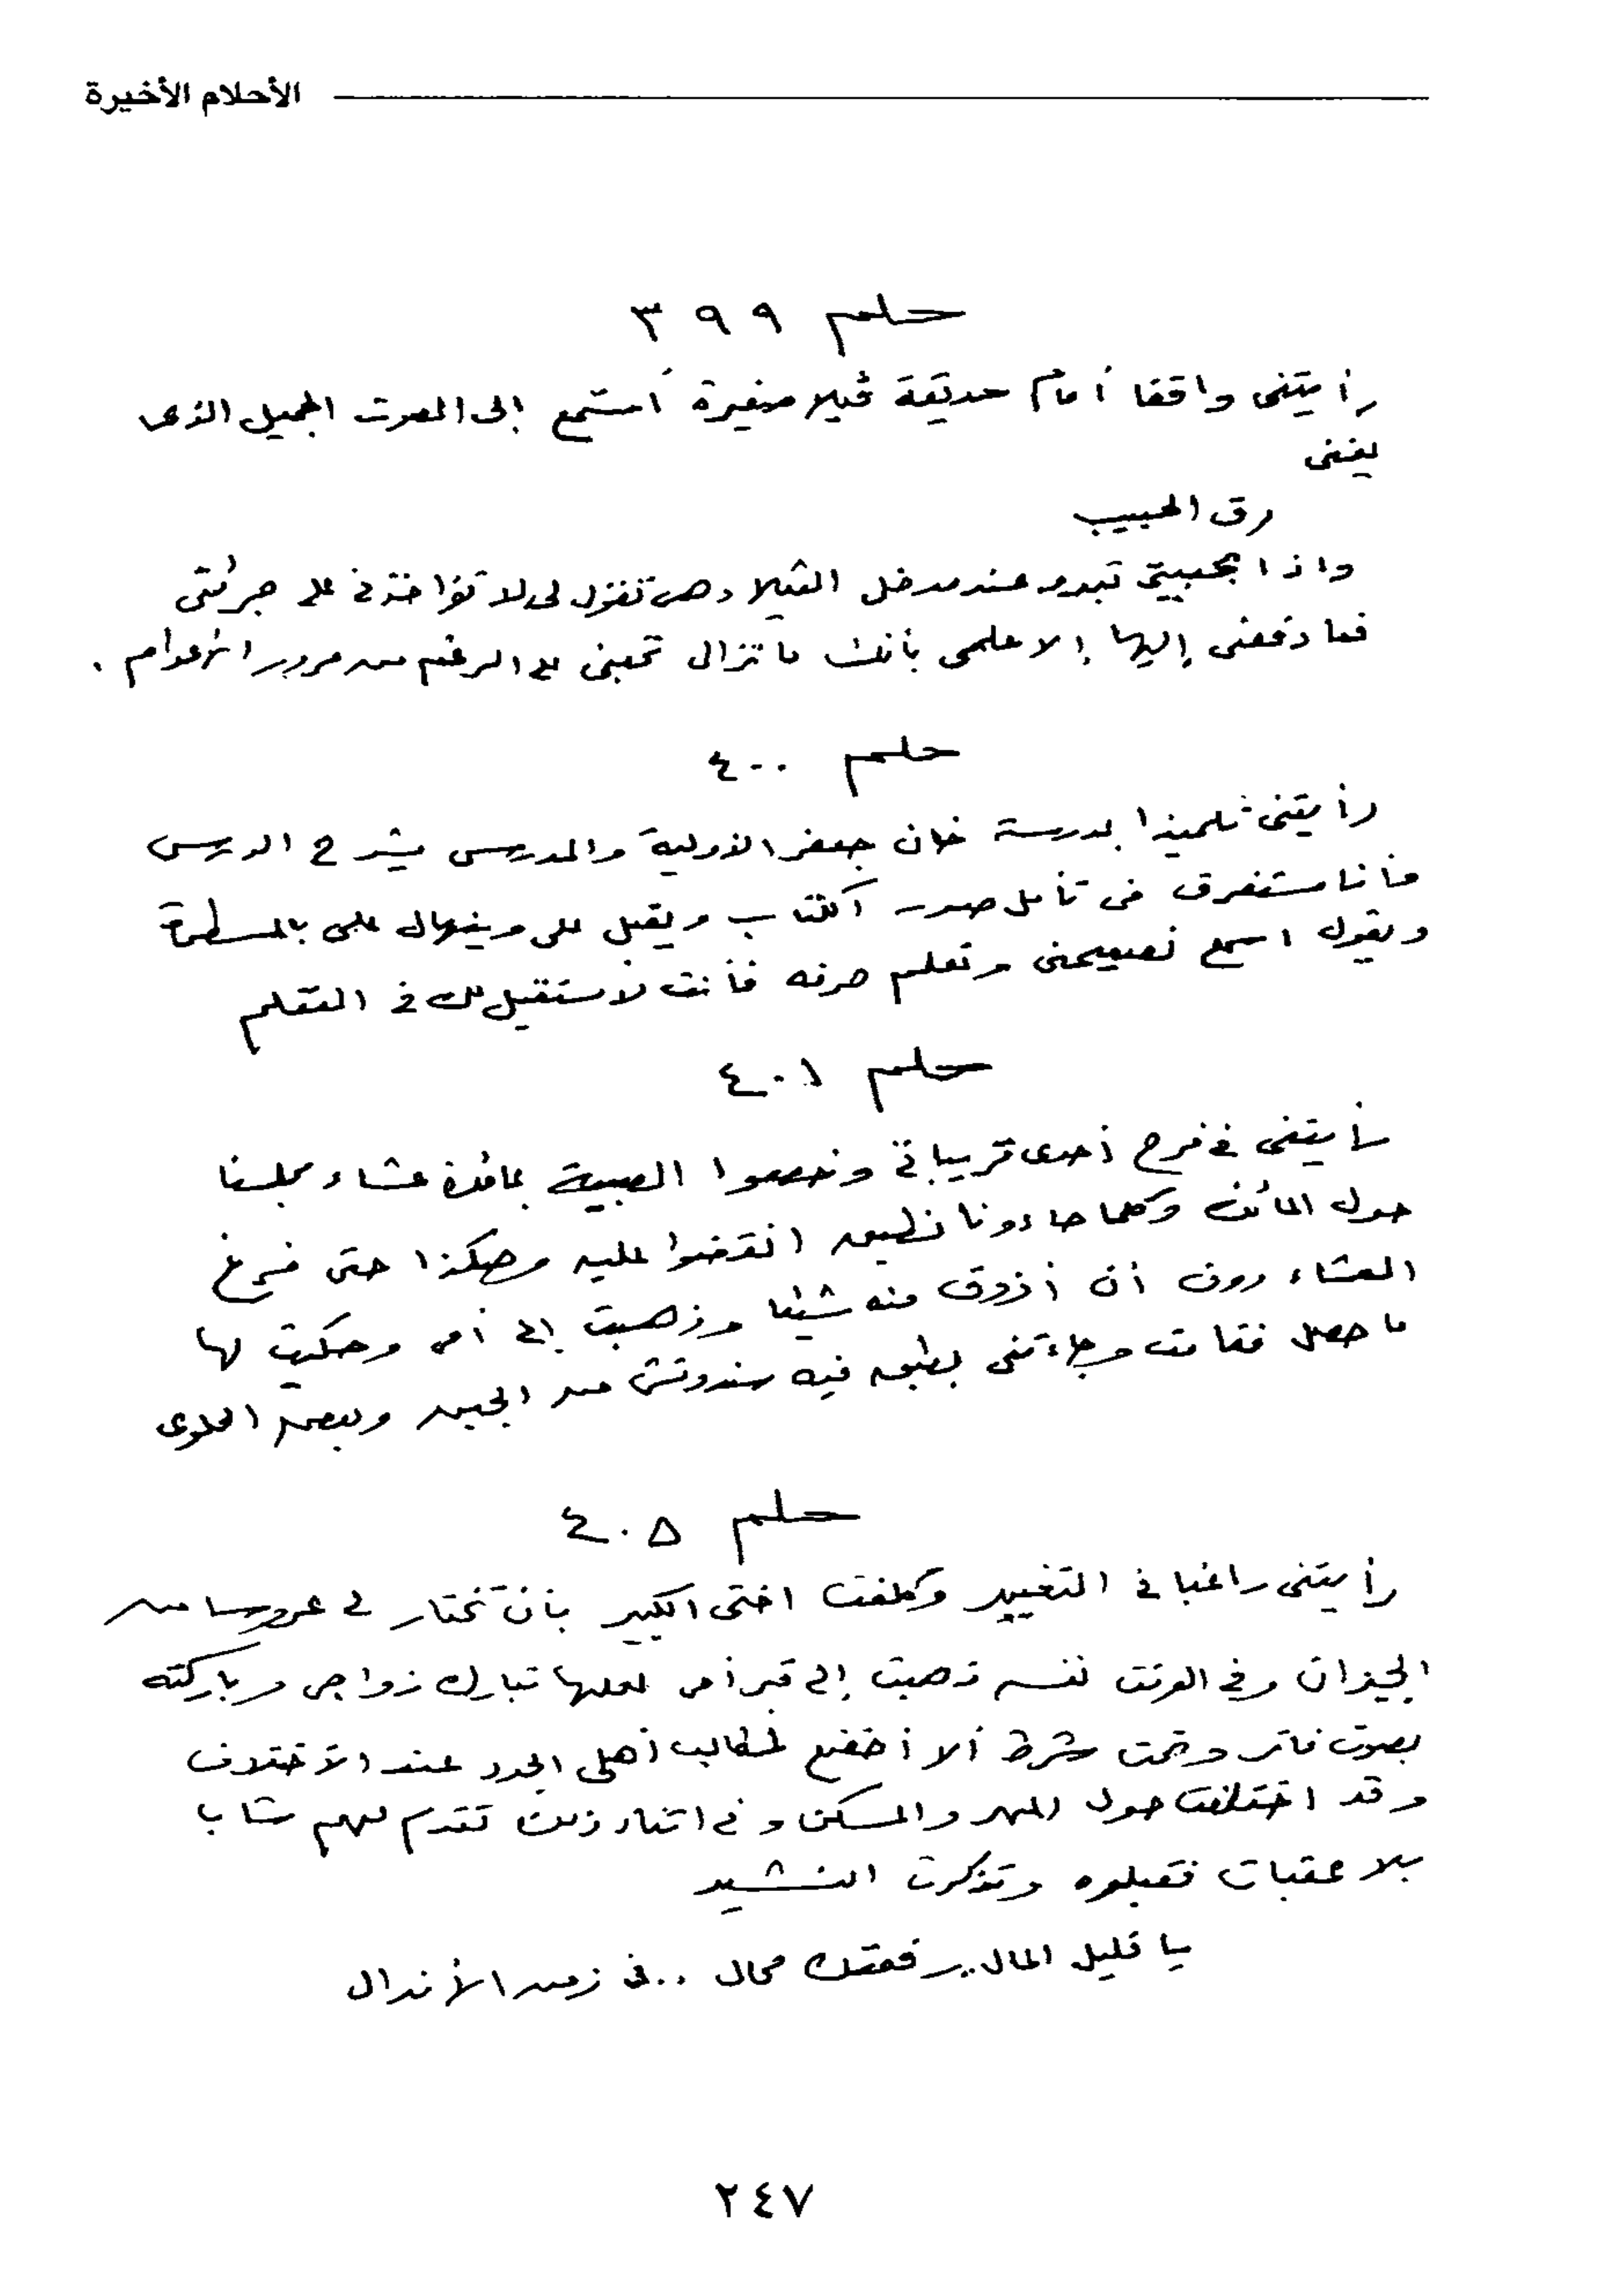 الأحلام الأخيرة
حلم ٣٩٩
رأيتنى واقفا أمام حديقة ڤيلا صغيرة أستمع إلى الصوت الجميل الذى
يغنى
رق الحبيب
واذا بحبيبتى تبدو عند مدخل الڤيلا وهى تقول لى لا تؤاخذنى على جرأتى
فما دفعنى إليها إلا علمى بأنك ما تزال تحبنى على الرغم من مرور الأعوام .
حلم ٤٠٠
رأيتنى تلميذا بمدرسة خان جعفر الأولية والمدرس يشرح الدرس
فأنا مستغرق فى تأمل صور الكتاب ويقبل على وينهال على بالمسطرة
ويقول اسمع نصيحتى وتعلم حرفة فأنت لا مستقبل لك فى التعلم
حلم ٤٠١
رأيتنى فى فرح أحدى قريباتى وخصصوا الصبية بمائدة عشاء مجلسنا
حول المائدة وكلما جاءونا بطبق انقضوا عليه وهكذا حتى فرغ
العشاء دون أن أذوق منه شيئا وذهبت إلى أمى وحكيت لها
ما حصل فقامت وجاءتنى بطبق فيه سندوتش من الجبن وبعض الحلوى
حلم ٤٠٥
رأيتنى راغبا فى التغيير وكلفت اختى الكبير بأن تختار لى عروسا من
الجيران وفى الوقت نفسه ذهبت إلى قبر أمى لعلها تبارك زواجى وباركته
بصوت فاتر وتحت شرط ألا أخضع لمطالب أهلى الجدد عند الاختلاف
وقد اختلفت حول المهر والمسكن وفى اثناء ذلك تقدم لهم شاب
بلا عقبات فقبلوه وتذكرت النشيد
يا قليل المال .. رفعتك محال .. فى زمن الأندال
٢٤٧